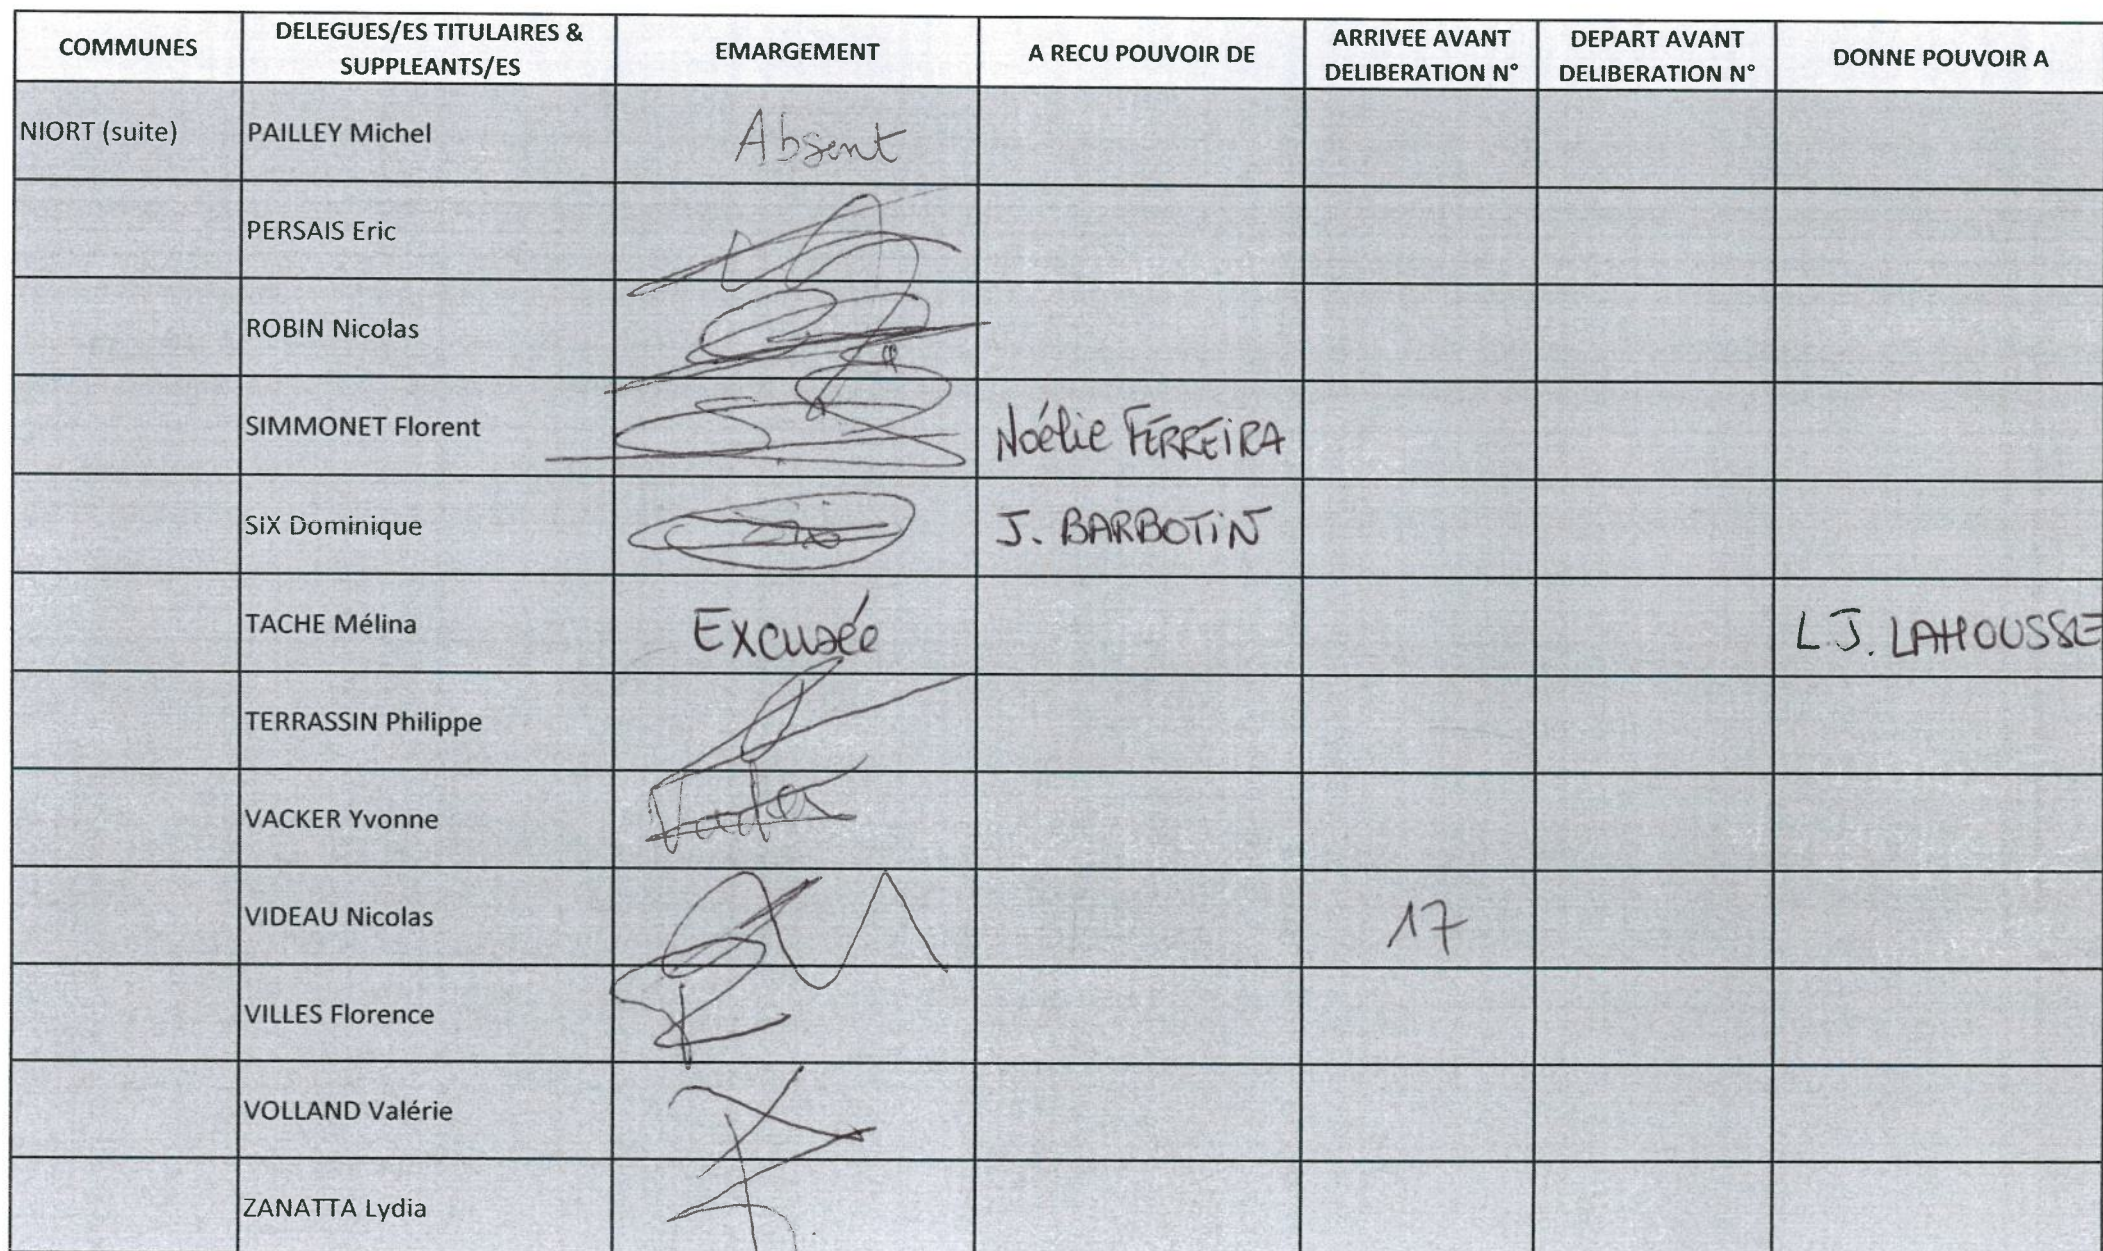 COMMUNES DELEGUES/ES TITULAIRES & SUPPLEANTS/ES EMARGEMENT A RECU POUVOIR DE ARRIVEE AVANT DELIBERATION N° DEPART AVANT DELIBERATION N° DONNE POUVOIR A
NIORT (suite) PAILLEY Michel Absent
PERSAIS Eric
ROBIN Nicolas
SIMMONET Florent Noélie FERREIRA
SIX Dominique J. BARBOTIN
TACHE Mélina Excusée L.J. LAHOUSSE
TERRASSIN Philippe
VACKER Yvonne
VIDEAU Nicolas 17
VILLES Florence
VOLLAND Valérie
ZANATTA Lydia